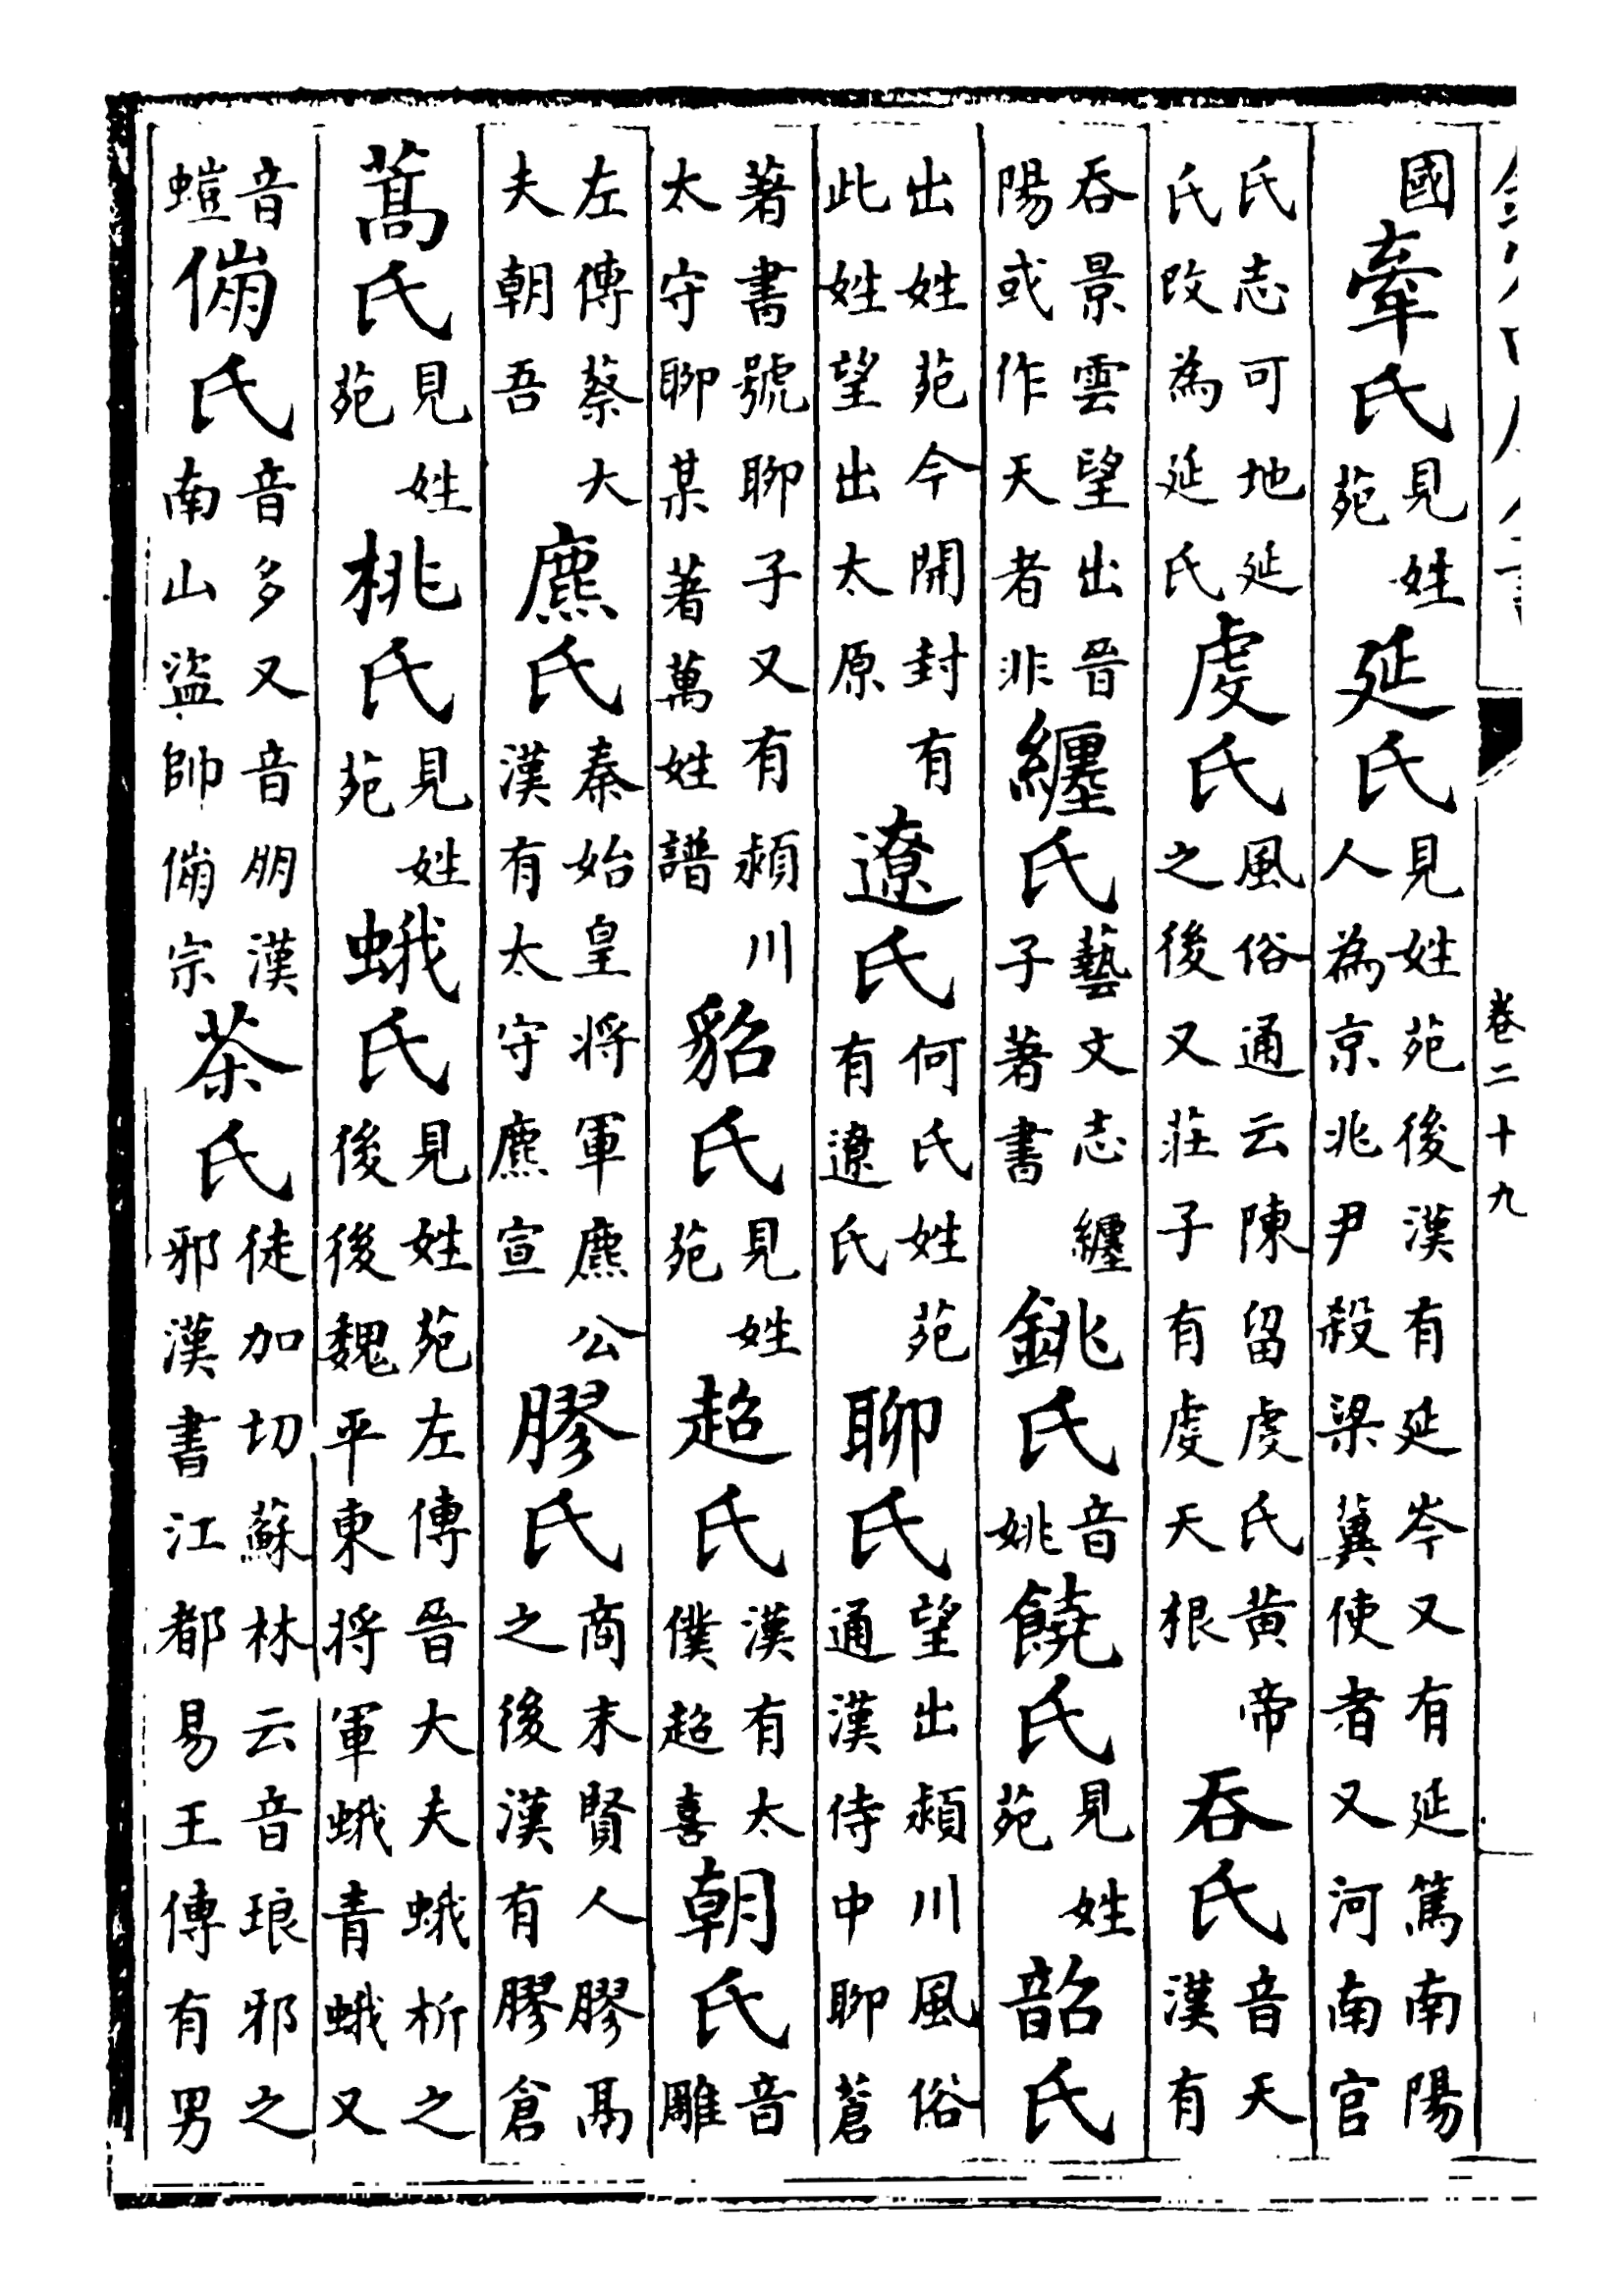 卷二十九
國牽氏見姓苑延氏見姓苑後漢有延岑又有延篤南陽人為京兆尹殺梁冀使者又河南官
氏志可地延氏攺為延氏虔氏風俗通云陳留虔氏黃帝之後又莊子有虔天根吞氏音天漢有
吞景雲望出晉陽或作天者非纏氏藝文志纏子著書銚氏音姚饒氏見姓苑韶氏
出姓苑今開封有此姓望出太原遼氏何氏姓苑有遼氏聊氏望出潁川風俗通漢侍中聊蒼
著書號聊子又有潁川太守聊某著萬姓譜貂氏見姓苑超氏漢有太僕超喜朝氏音雕
左傳蔡大夫朝吾麃氏秦始皇將軍麃公漢有太守麃宣膠氏商末賢人膠鬲之後漢有膠倉
蒿氏見姓苑桃氏見姓苑蛾氏見姓苑左傳晉大夫蛾析之後後魏平東將軍蛾青蛾又
音螘傰氏音多又音朋漢南山盜帥傰宗茶氏徒加切蘇林云音琅邪之邪漢書江都易王傳有男